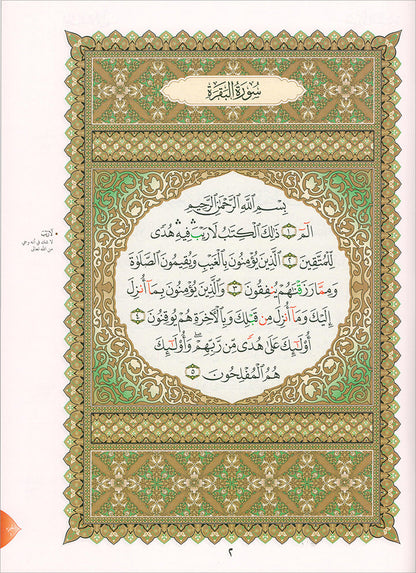 سُورَةُ البَقَرَةِ
بِسْمِ اللَّهِ الرَّحْمَٰنِ الرَّحِيمِ
الٓمٓ ١ ذَٰلِكَ الْكِتَابُ لَا رَيْبَ ۛ فِيهِ ۛ هُدًى
لِّلْمُتَّقِينَ ٢ الَّذِينَ يُؤْمِنُونَ بِالْغَيْبِ وَيُقِيمُونَ الصَّلَاةَ
وَمِمَّا رَزَقْنَاهُمْ يُنفِقُونَ ٣ وَالَّذِينَ يُؤْمِنُونَ بِمَا أُنزِلَ
إِلَيْكَ وَمَا أُنزِلَ مِن قَبْلِكَ وَبِالْآخِرَةِ هُمْ يُوقِنُونَ ٤
أُولَٰئِكَ عَلَىٰ هُدًى مِّن رَّبِّهِمْ ۖ وَأُولَٰئِكَ
هُمُ الْمُفْلِحُونَ ٥
• لَا رَيْبَ
لا شك في أنه وحي
من الله تعالى
٢